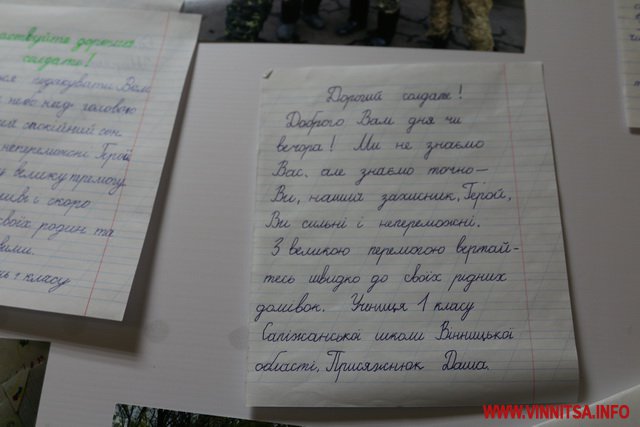 дорогий
солдате!
подякувати Вам
небо над головою
спокійний сон
непереможні Герой
велику перемогу
і скоро
своїх родин та
1 класу
Дорогий солдат!
Доброго Вам дня чи
вечора! Ми не знаємо
Вас, але знаємо точно –
Ви, нашим захисник, Герой,
Ви сильні і непереможні.
З великою перемогою вертай-
тесь швидко до своїх рідних
домівок. Учениця 1 класу
Сапіжанської школи Вінницької
області, Присяжнюк Даша.
WWW.VINNITSA.INFO